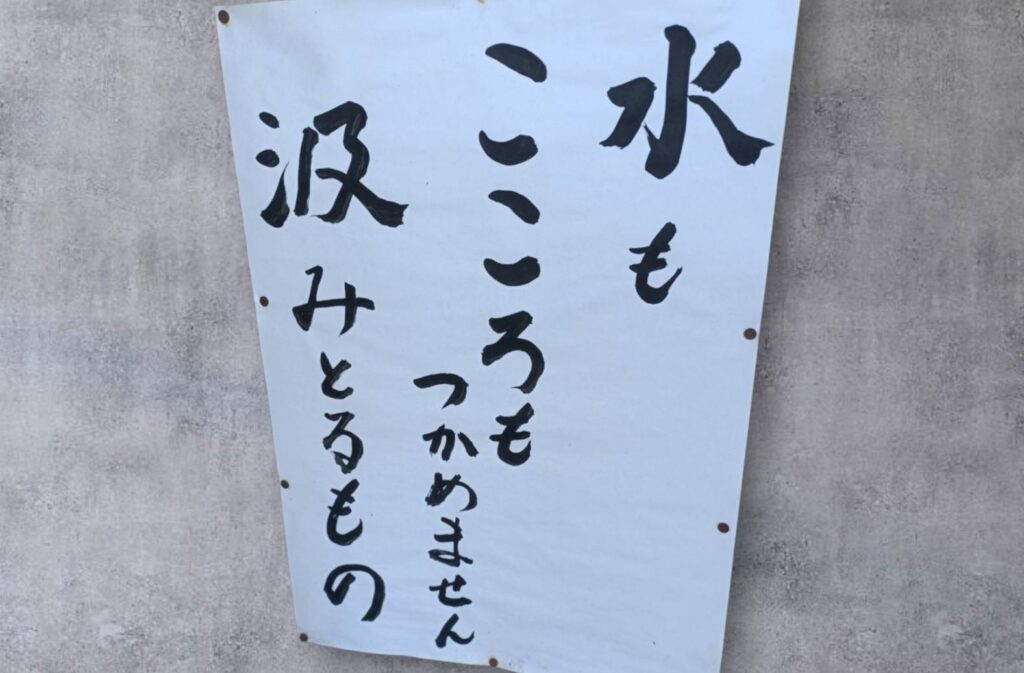 水も
こころも
つかめません
汲みとるもの